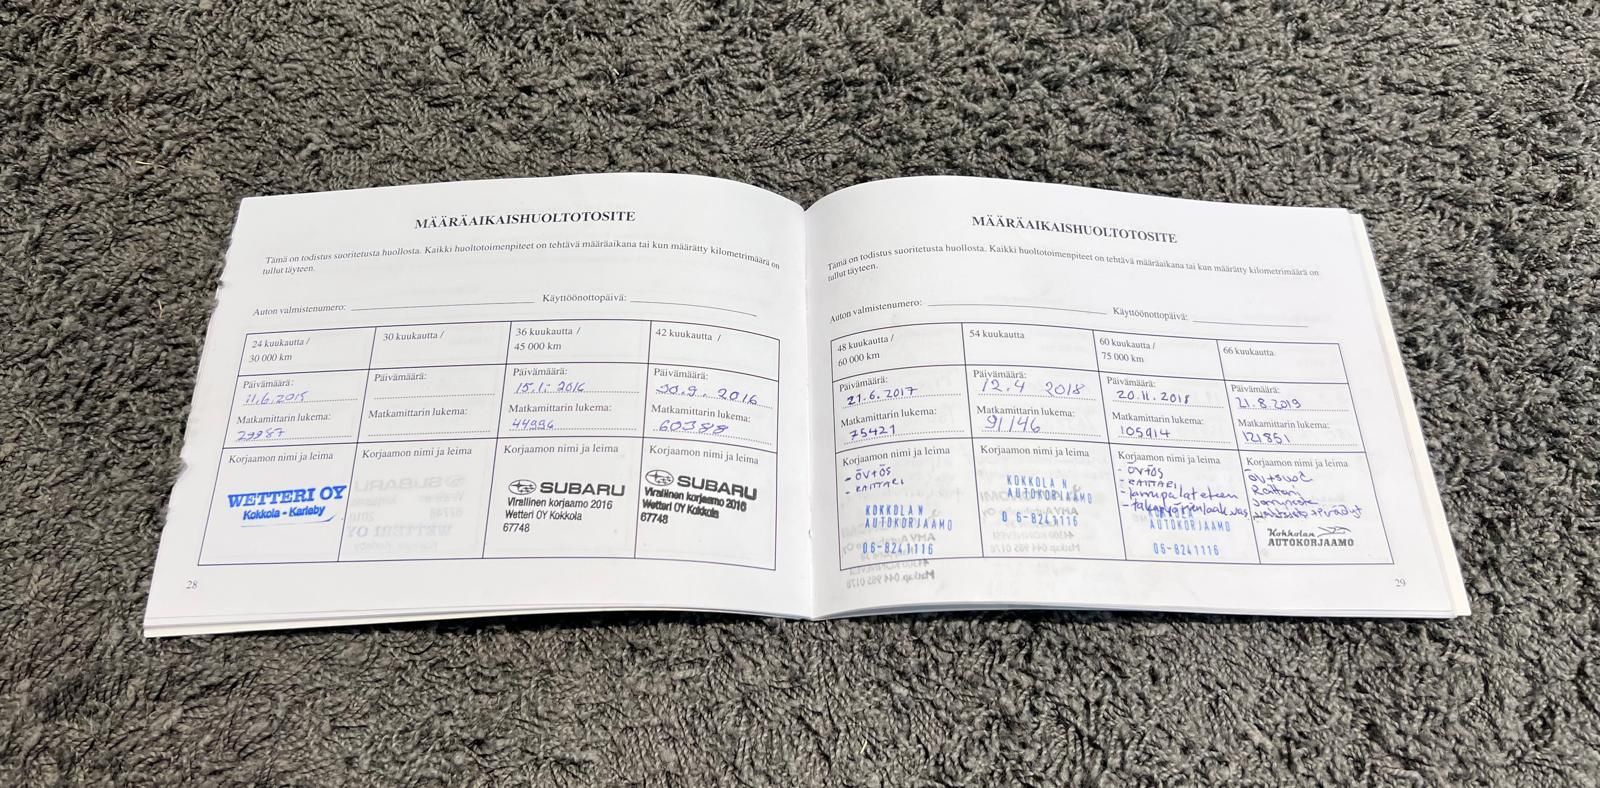 MÄÄRÄAIKAISHUOLTOTOSITE
Tämä on todistus suoritetusta huollosta. Kaikki huoltotoimenpiteet on tehtävä määräaikana tai kun määrätty kilometrimäärä on
tullut täyteen.
Auton valmistenumero: Käyttöönottopäivä:
24 kuukautta /
30 000 km
30 kuukautta /
36 kuukautta /
45 000 km
42 kuukautta /
Päivämäärä:
11.6.2015
Päivämäärä:
Päivämäärä:
15.1.-2016
Päivämäärä:
30.9.2016
Matkamittarin lukema:
Matkamittarin lukema:
Matkamittarin lukema:
44996
Matkamittarin lukema:
60388
Korjaamon nimi ja leima
WETTERI OY
Kokkola - Karleby
Korjaamon nimi ja leima
Korjaamon nimi ja leima
SUBARU
Virallinen korjaamo 2016
Wetteri OY Kokkola
67748
Korjaamon nimi ja leima
SUBARU
Virallinen korjaamo 2016
Wetteri OY Kokkola
67748
28
MÄÄRÄAIKAISHUOLTOTOSITE
Tämä on todistus suoritetusta huollosta. Kaikki huoltotoimenpiteet on tehtävä määräaikana tai kun määrätty kilometrimäärä on
tullut täyteen.
Auton valmistenumero: Käyttöönottopäivä:
48 kuukautta /
60 000 km
54 kuukautta
60 kuukautta /
75 000 km
66 kuukautta
Päivämäärä:
21.6.2017
Päivämäärä:
12.4 2018
Päivämäärä:
20.11.2018
Päivämäärä:
21.8.2019
Matkamittarin lukema:
75421
Matkamittarin lukema:
91146
Matkamittarin lukema:
105914
Matkamittarin lukema:
121851
Korjaamon nimi ja leima
- ÖV+ÖS
- RAITTARI
KOKKOLAN
AUTOKORJAAMO
06-8241116
Korjaamon nimi ja leima
KOKKOLAN
AUTOKORJAAMO
06-8241116
Korjaamon nimi ja leima
- ÖV+ÖS
- RAITTARI
AUTOKORJAAMO
06-8241116
Korjaamon nimi ja leima
Kokkolan
AUTOKORJAAMO
29